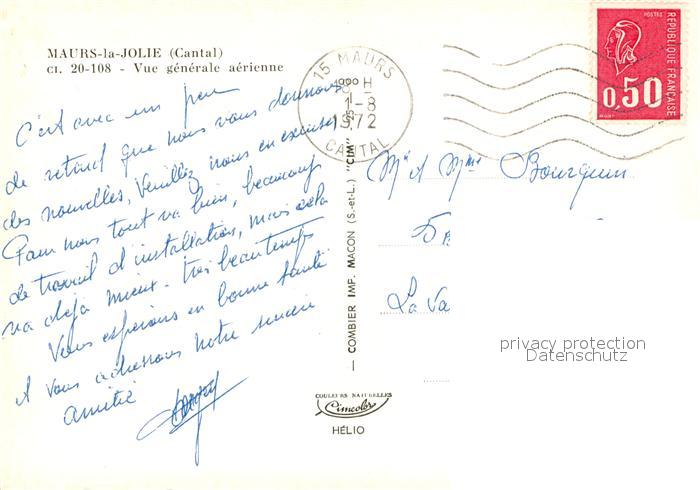 MAURS-la-JOLIE (Cantal)
CI. 20-108 - Vue générale aérienne
C'est avec un peu
de retard que nous vous donnons
des nouvelles, Veuillez nous en excuser
Pour nous tout va bien, beaucoup
de travail d'installation, mais cela
va déjà mieux - très beau temps
Vous espérons en bonne santé
et vous adressons notre sincère
amitié
15 MAURS
H
1-8
1972
CANTAL
POSTES
REPUBLIQUE FRANÇAISE
0,50
COMBIER IMP. MACON (S.-et-L.) "CIM"
Mr et Mme Bourquin
La Va
privacy protection
Datenschutz
COULEURS NATURELLES
Cimcolor
HÉLIO